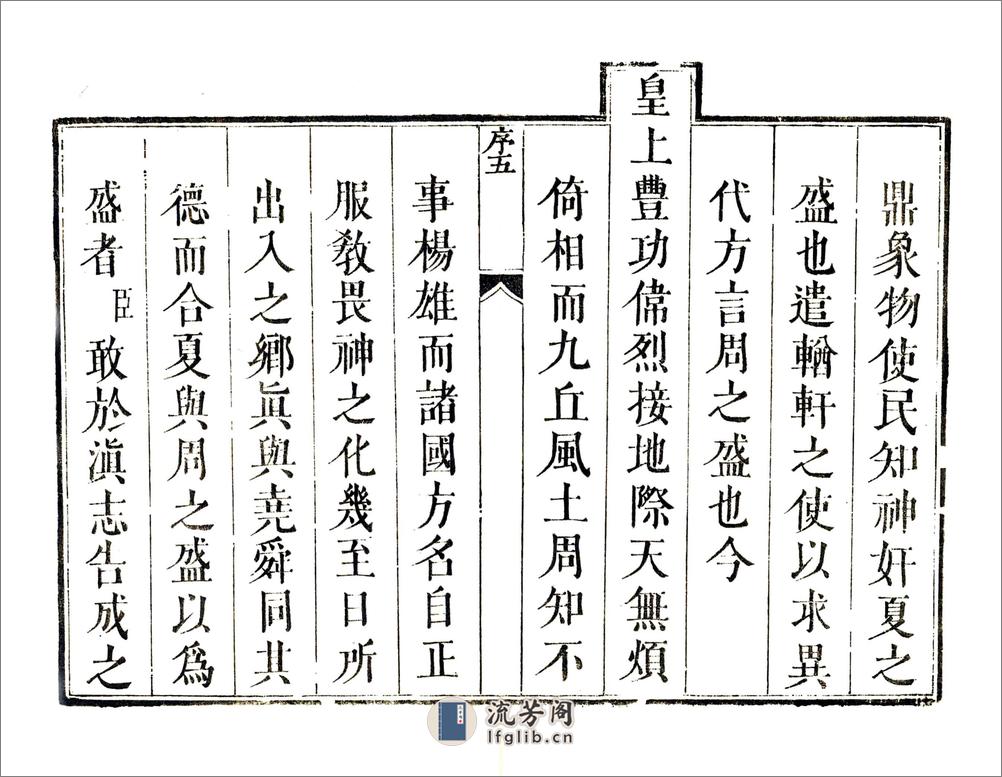 鼎象物使民知神奸夏之
盛也遣輶軒之使以求異
代方言周之盛也今
皇上豐功偉烈接地際天無煩
倚相而九丘風土周知不
序五
事楊雄而諸國方名自正
服敎畏神之化幾至日所
出入之鄉眞與堯舜同其
德而合夏與周之盛以爲
盛者臣敢於滇志告成之
流芳阁
lfglib.cn